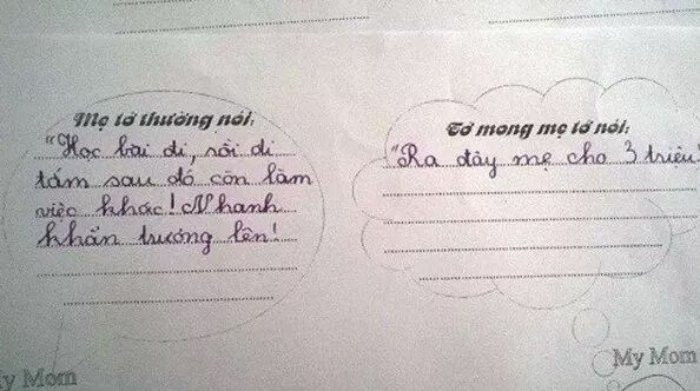 Mẹ tớ thường nói:
"Học bài đi, rồi đi
tắm sau đó còn làm
việc khác! Nhanh
khẩn trương lên!
y Mom
Tớ mong mẹ tớ nói:
"Ra đây mẹ cho 3 triệu!
My Mom